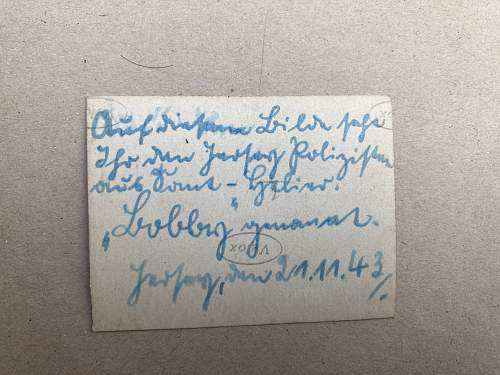 Auf diesem Bilde seht
Ihr den Jersey Polizisten
aus Sant - Helier.
„Bobby" genannt.
Velox
Jersey, den 21.11.43